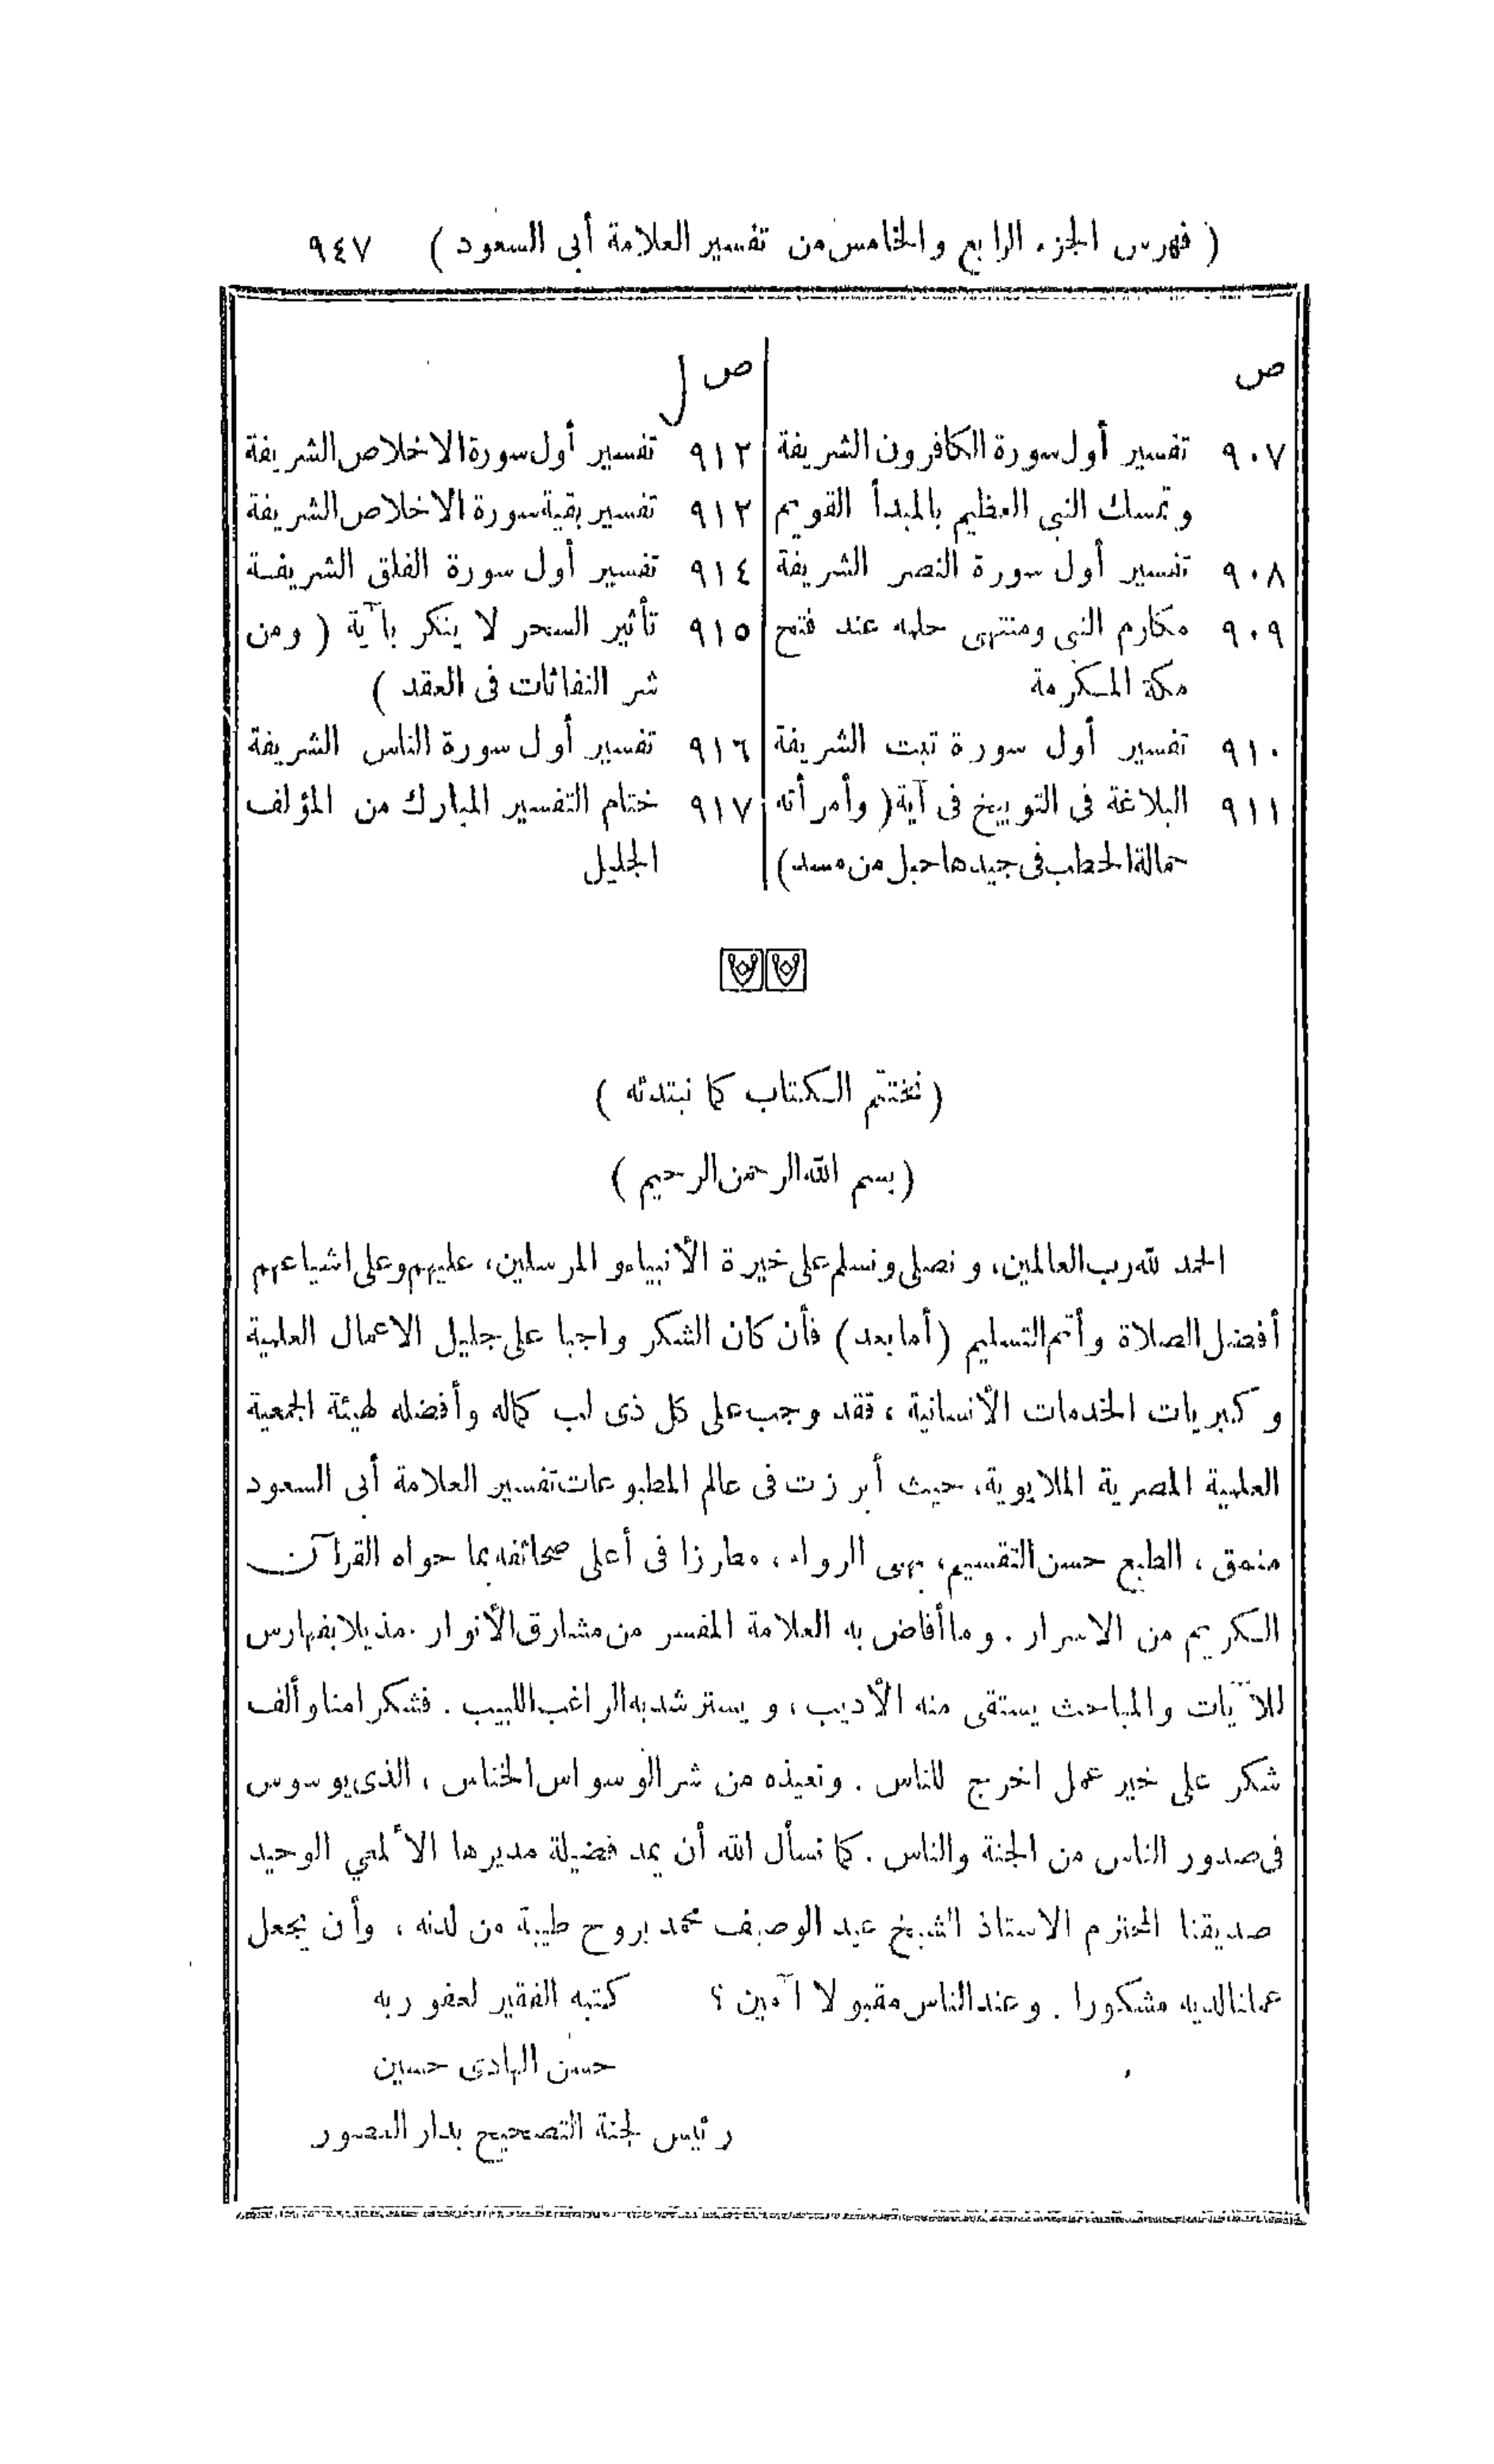 ( فهرس الجزء الرابع والخامس من تفسير العلامة أبى السعود ) ٩٤٧
ص
٩٠٧ تفسير أول سورة الكافرون الشريفة
وتمسك النبى العظيم بالمبدأ القويم
٩٠٨ تفسير أول سورة النصر الشريفة
٩٠٩ مكارم النبى ومنتهى حلمه عند فتح
مكة المكرمة
٩١٠ تفسير أول سورة تبت الشريفة
٩١١ البلاغة فى التوبيخ فى آية ( وأمرأته
حمالة الحطب فى جيدها حبل من مسد )
ص
٩١٢ تفسير أول سورة الاخلاص الشريفة
٩١٣ تفسير بقية سورة الاخلاص الشريفة
٩١٤ تفسير أول سورة الفلق الشريفة
٩١٥ تأثير السحر لا ينكر بآية ( ومن
شر النفاثات فى العقد )
٩١٦ تفسير أول سورة الناس الشريفة
٩١٧ ختام التفسير المبارك من المؤلف
الجليل
( نختتم الكتاب كما نبتدئه )
( بسم الله الرحمن الرحيم )
الحمد لله رب العالمين، ونصلى ونسلم على خيرة الأنبياء والمرسلين، عليهم وعلى اشياعهم
أفضل الصلاة وأتم التسليم (أما بعد) فأن كان الشكر واجبا على جليل الاعمال العلمية
وكبريات الخدمات الأنسانية ، فقد وجب على كل ذى لب كماله وأفضله لهيئة الجمعية
العلمية المصرية الملايوية، حيث أبرزت فى عالم المطبوعات تفسير العلامة أبى السعود
منمق ، الطبع حسن التقسيم، بهى الرواء، مطرزا فى أعلى صحائفه بما حواه القرآن
الكريم من الاسرار . وما أفاض به العلامة المفسر من مشارق الأنوار . مذيلا بفهارس
للآيات والمباحث يستقى منه الأديب ، ويسترشد به الراغب اللبيب . فشكرا منا وألف
شكر على خير عمل اخرج للناس . ونعيذه من شر الوسواس الخناس ، الذى يوسوس
فى صدور الناس من الجنة والناس . كما نسأل الله أن يمد فضيلة مديرها الألمعي الوحيد
صديقنا المحترم الاستاذ الشيخ عبد الوصيف محمد بروح طيبة من لدنه ، وأن يجعل
عملنا لديه مشكورا . وعند الناس مقبولا آمين ؟ كتبه الفقير لعفو ربه
حسن الهادى حسين
رئيس لجنة التصحيح بدار العصور